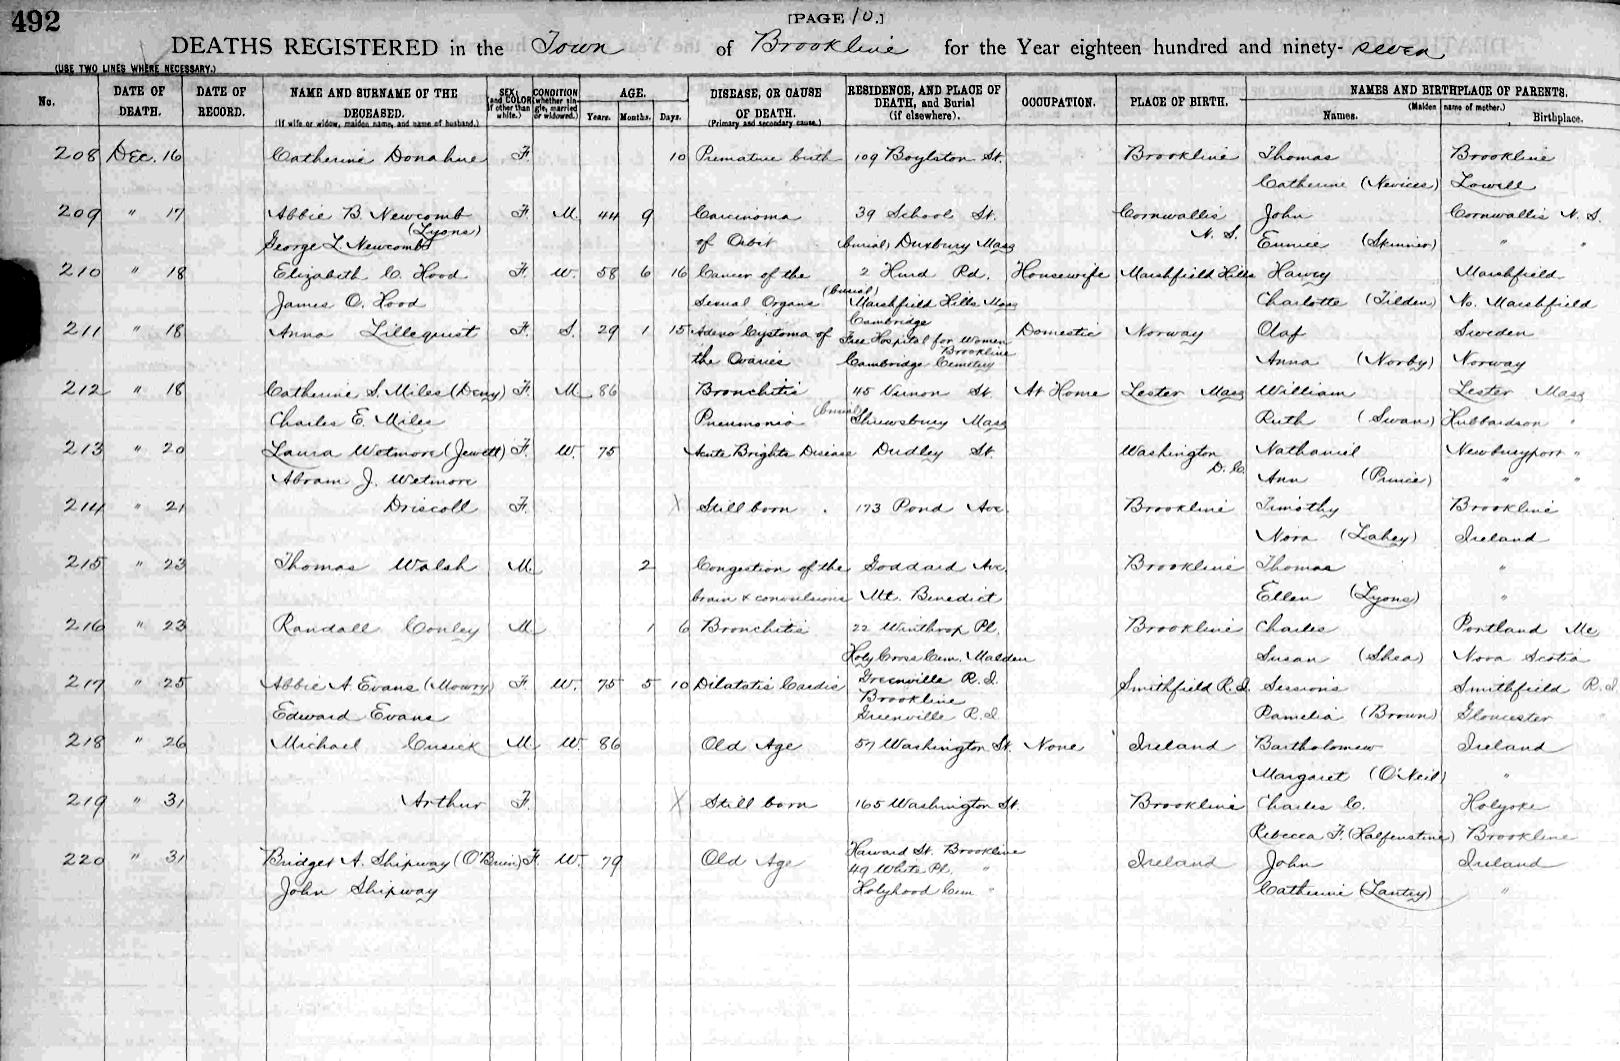 492
[PAGE 10.]
DEATHS REGISTERED in the Town of Brookline for the Year eighteen hundred and ninety-seven
(USE TWO LINES WHERE NECESSARY.)
No. DATE OF DEATH. DATE OF RECORD. NAME AND SURNAME OF THE DECEASED. (If wife or widow, maiden name, and name of husband.) SEX (and COLOR if other than white.) CONDITION (whether single, married or widowed.) AGE. Years. Months. Days. DISEASE, OR CAUSE OF DEATH. (Primary and secondary cause.) RESIDENCE, AND PLACE OF DEATH, and Burial (if elsewhere). OCCUPATION. PLACE OF BIRTH. NAMES AND BIRTHPLACE OF PARENTS. (Maiden name of mother.) Names. Birthplace.
208 Dec. 16 Catherine Donahue F. 10 Premature birth 109 Boylston St. Brookline Thomas Brookline
Catherine (Nevices) Lowell
209 " 17 Abbie B. Newcomb F. M. 44 9 Carcinoma 39 School St. Cornwallis John Cornwallis N. S.
(Lyons)
George L. Newcomb of Orbit (burial) Duxbury Mass N. S. Eunice (Skinner) " "
210 " 18 Elizabeth C. Hood F. W. 58 6 16 Cancer of the 2 Hurd Rd. Housewife Marshfield Hills Harvey Marshfield
James O. Hood Sexual Organs (burial) Marshfield Hills Mass Charlotte (Tilden) No. Marshfield
211 " 18 Anna Lillequist F. S. 29 1 15 Adeno Cystoma of Cambridge Domestic Norway Olaf Sweden
Free Hospital for Women
Brookline
the Ovaries Cambridge Cemetery Anna (Norby) Norway
212 " 18 Catherine S. Miles (Deny) F. M. 86 Bronchitis 45 Vernon St. At Home Lester Mass William Lester Mass
Charles E. Miles Pneumonia (burial) Shrewsbury Mass Ruth (Swan) Hubbardson "
213 " 20 Laura Wetmore (Jewett) F. W. 75 Acute Brights Disease Dudley St. Washington Nathaniel Newburyport "
Abram J. Wetmore D. C. Ann (Prince) " "
214 " 21 Driscoll F. X Still born 173 Pond Ave. Brookline Timothy Brookline
Nora (Lahey) Ireland
215 " 23 Thomas Walsh M. 2 Congestion of the Goddard Ave. Brookline Thomas "
brain & convulsions Mt. Benedict Ellen (Lyons) "
216 " 23 Randall Conley M 1 6 Bronchitis 22 Winthrop Pl. Brookline Charles Portland Me
Holy Cross Cem. Malden Susan (Shea) Nova Scotia
217 " 25 Abbie A. Evans (Mowry) F. W. 75 5 10 Dilatatis Cardis Greenville R. I. Smithfield R.I. Sessions Smithfield R.I.
Brookline
Edward Evans Greenville R. I Pamelia (Brown) Gloucester "
218 " 26 Michael Cusick M W 86 Old Age 57 Washington St. None Ireland Bartholomew Ireland
Margaret (O'Neil) "
219 " 31 Arthur F. X Still born 165 Washington St. Brookline Charles C. Holyoke
Rebecca F. (Halfenstine) Brookline
220 " 31 Bridget A. Shipway (O'Brien) F. W. 79 Old Age Harvard St. Brookline Ireland John Ireland
49 White Pl. "
John Shipway Holyhood Cem " Catherine (Lantry) "